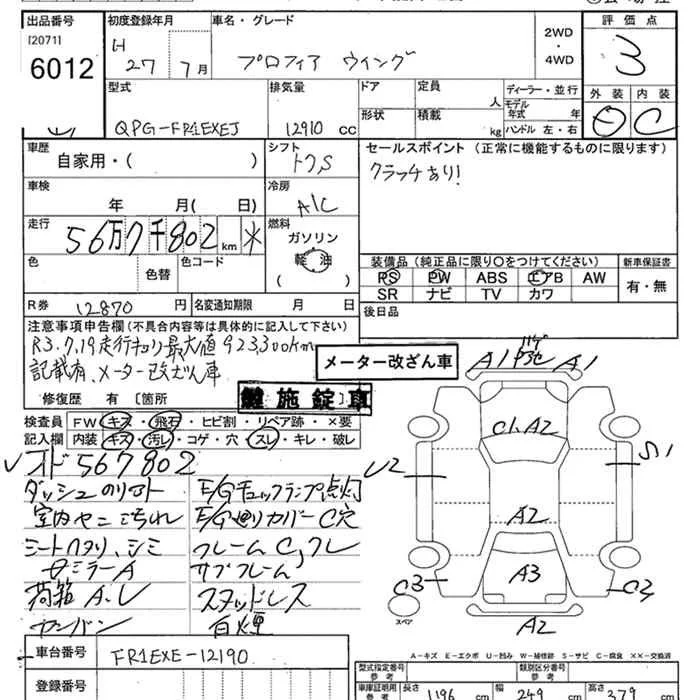 出品番号 初度登録年月 車名・グレード 2WD ・ 4WD 評価点
[2071] 6012 H 27 7月 プロフィア ウイング 3
型式 排気量 ドア 定員 人 ディーラー・並行 外装 内装
QPG-FR1EXEJ 12910 cc 形状 積載 kg モデル年式 年 ハンドル 左・右 C
車歴 シフト セールスポイント (正常に機能するものに限ります)
自家用・( ) クラッチあり!
車検 年 月( 日) 冷房 A/C
走行 56万7千802km 燃料
ガソリン
軽油
( )
色 色替 色コード
装備品 (純正品に限り○をつけてください) 新車保証書
PS PW ABS エアB AW 有・無
SR ナビ TV カワ
R券 12870 円 名変通知期限 月 日 後日品
注意事項申告欄 (不具合内容等は具体的に記入して下さい)
R3.7.19走行キョリ最大値923,300km
記載有、メーター改ざん車
メーター改ざん車
修復歴 有 [箇所 ]
施錠車
検査員記入欄 FW キズ・飛石・ヒビ割・リペア跡・×要
内装 キズ・汚レ・コゲ・穴・スレ・キレ・破レ
オド567802
室内ヤニ汚れ
シートヘタリ、シミ
荷箱A.U
カンバン
E/Gチェックランプ点灯
E/G廻りカバーC穴
サブフレーム
スタッドレス
白煙
A1 A1
C1.A2
U2 S1
A2
A3
C3 C3
A2
スペア
A-キズ E-エクボ U-凹み W-補修跡 S-サビ C-腐食 ××-交換済
車台番号 FR1EXE-12190
登録番号
型式指定番号 参考 類別区分番号 参考
車庫証明用 参考 長さ 1196 cm 幅 249 cm 高さ 379 cm